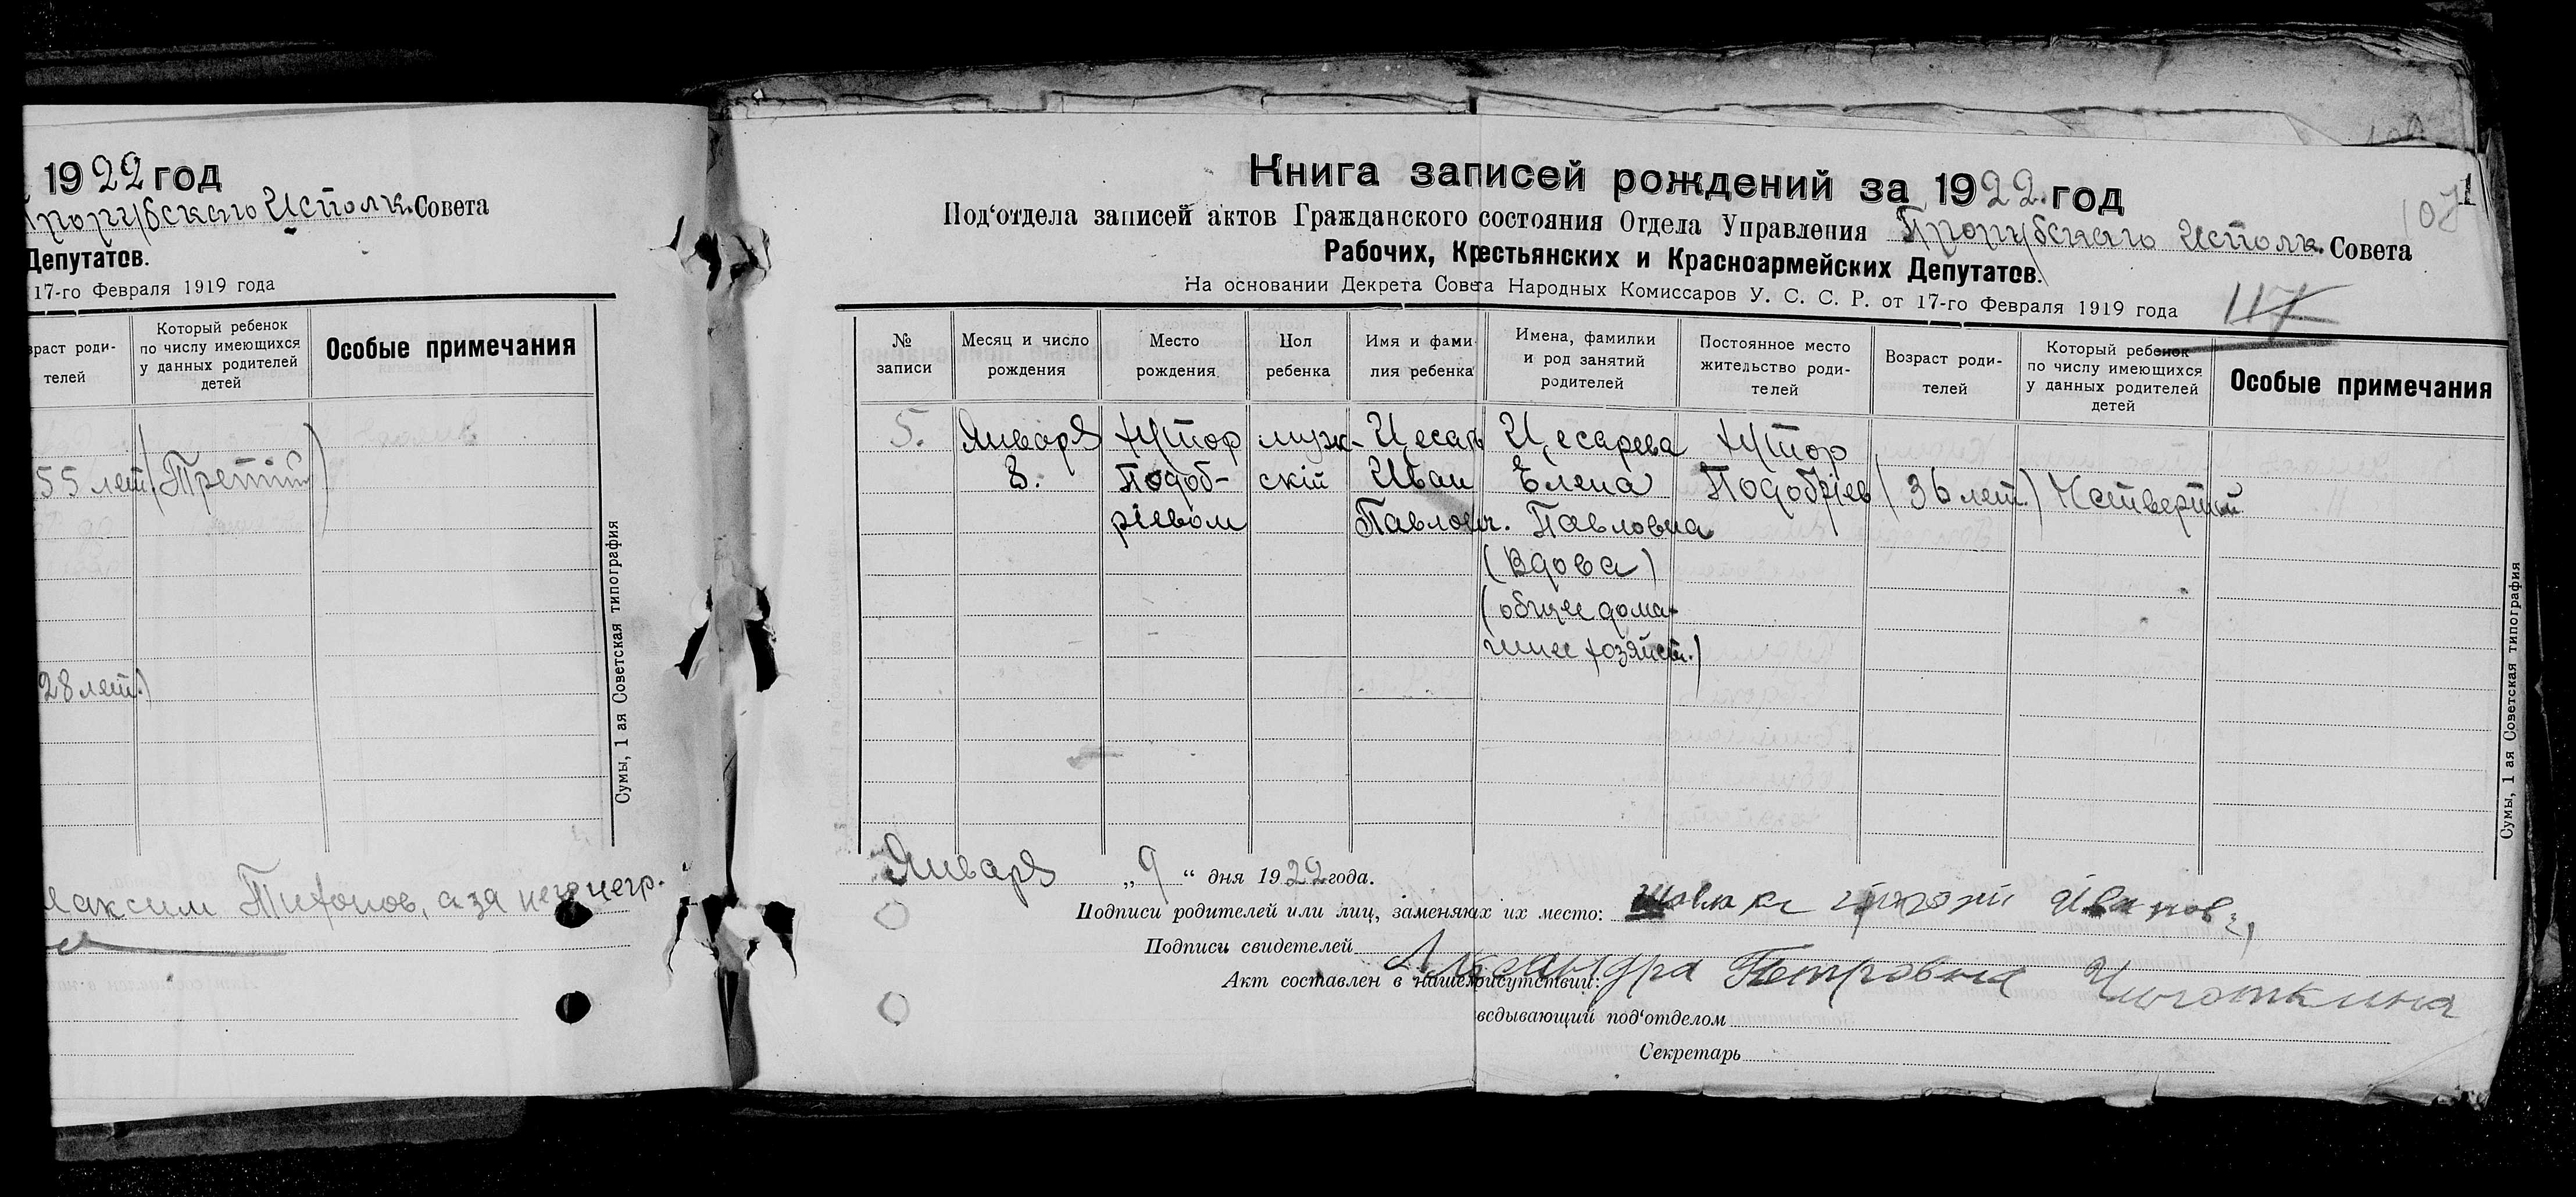 1922 год
Прорубского Исполк. Совета
Депутатов.
17-го Февраля 1919 года
зраст роди-
телей
Который ребенок
по числу имеющихся
у данных родителей
детей
Особые примечания
55 лет) (Третий)
28 лет.)
Сумы, 1 ая Советская типография
Максим Тихонов, а за него негр.
Книга записей рождений за 1922 год
107
1
Под‘отдела записей актов Гражданского состояния Отдела Управления Прорубского Исполк. Совета
Рабочих, Крестьянских и Красноармейских Депутатов.
На основании Декрета Совета Народных Комиссаров У. С. С. Р. от 17-го Февраля 1919 года
117
№
записи
Месяц и число
рождения
Место
рождения
Пол
ребенка
Имя и фами-
лия ребенка
Имена, фамилии
и род занятий
родителей
Постоянное место
жительство роди-
телей
Возраст роди-
телей
Который ребенок
по числу имеющихся
у данных родителей
детей
Особые примечания
5.
Января
8.
Хутор
Подоб-
ріевом
муж-
скій
Цесарь
Иван
Павлович.
Цесарева
Елена
Павловна
(Вдова)
(общее дома-
шнее хозяйст.)
Хутор
Подобріев
(36 лет)
Четвертый
Сумы, 1 ая Советская типография
Января „9“ дня 1922 года.
Подписи родителей или лиц, заменяюх их место: Иванов
Подписи свидетелей
Александра Петровна
Акт составлен в нашем рисутствии:
ведывающий под‘отделом
Секретарь